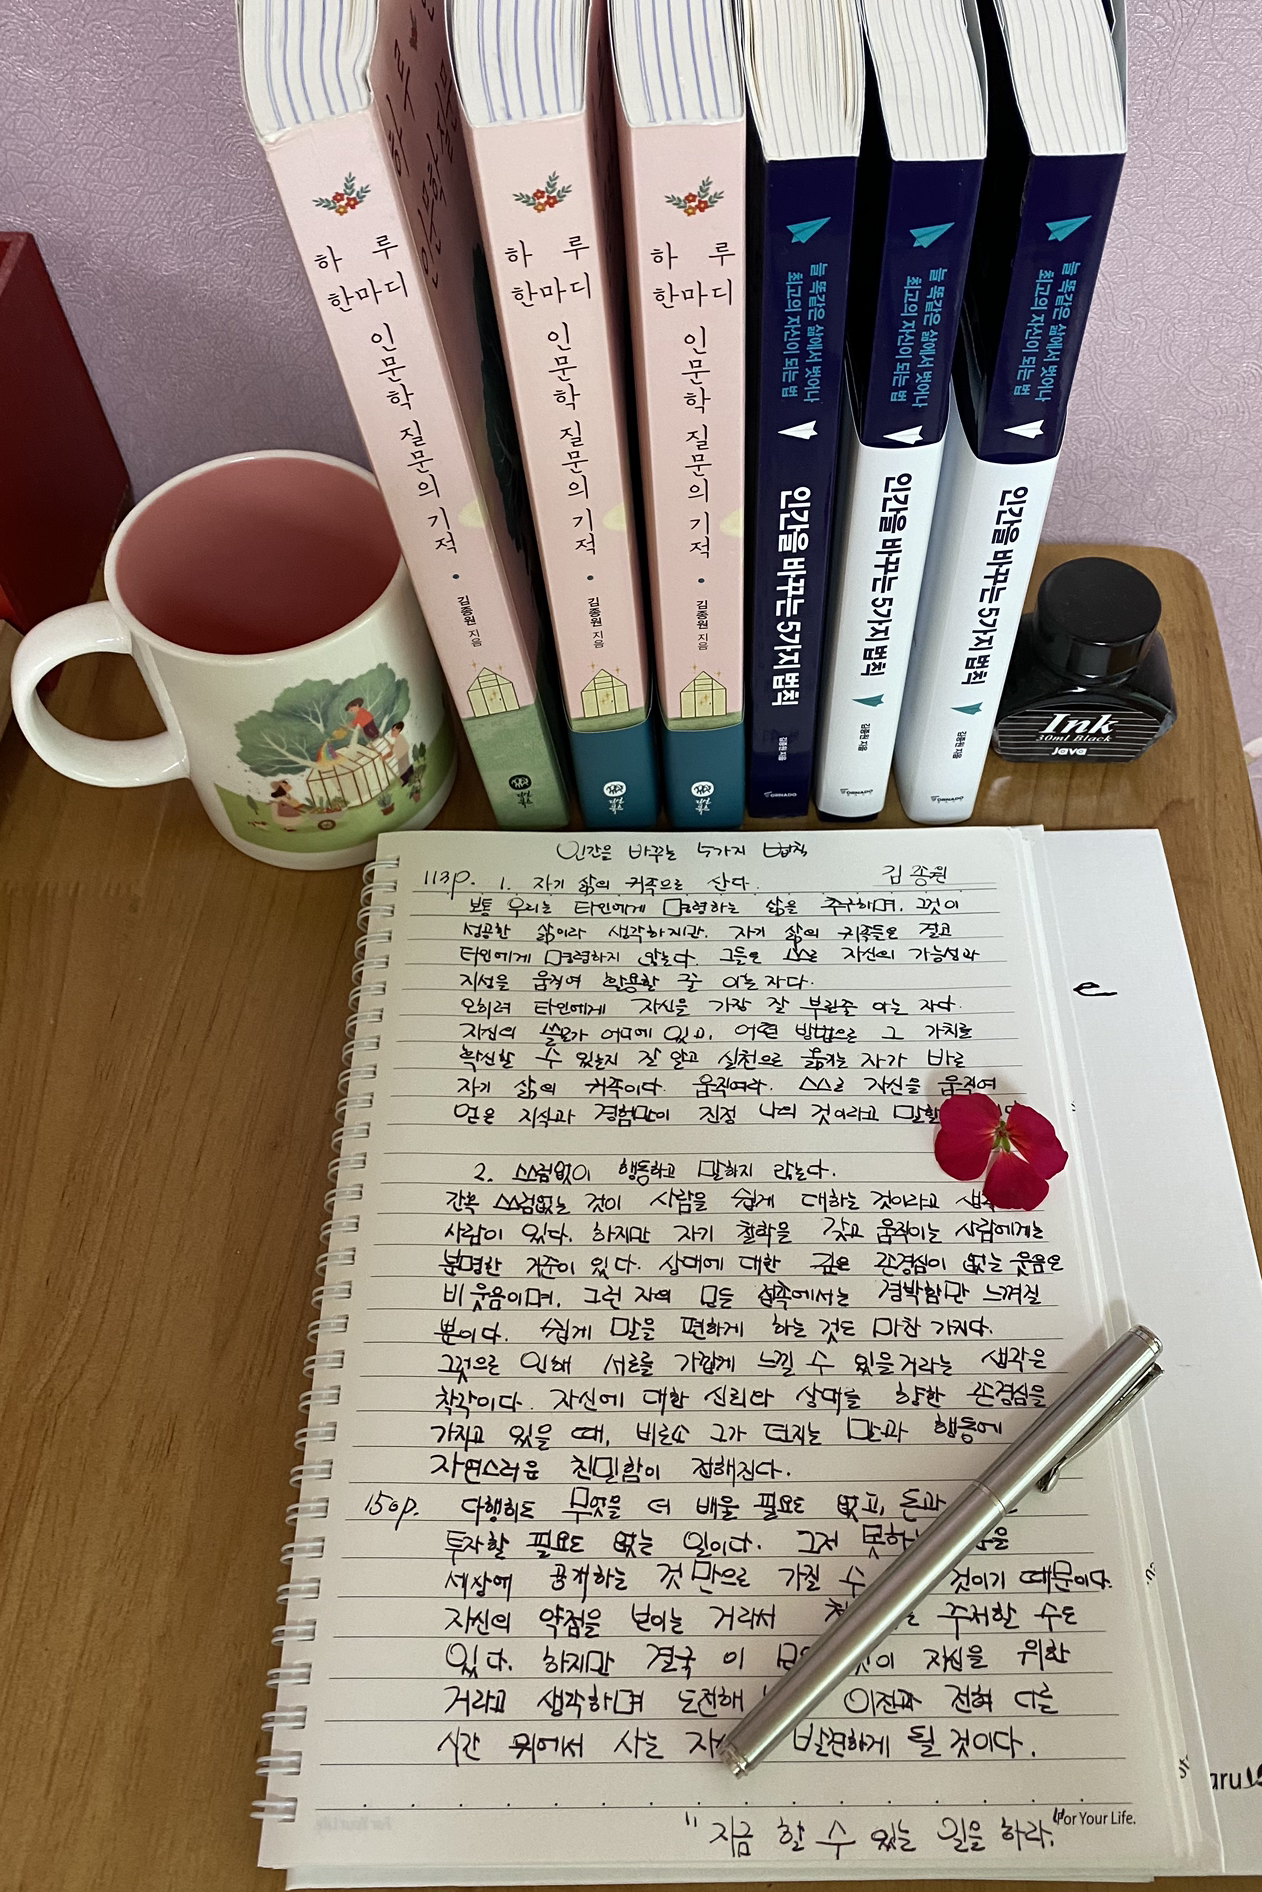 하루
한마디
인문학 질문의 기적
김종원 지음
하루
한마디
인문학 질문의 기적
김종원 지음
하루
한마디
인문학 질문의 기적
김종원 지음
늘 똑같은 삶에서 벗어나
최고의 자신이 되는 법
인간을 바꾸는 5가지 법칙
김종원 지음
TORNADO
늘 똑같은 삶에서 벗어나
최고의 자신이 되는 법
인간을 바꾸는 5가지 법칙
김종원 지음
TORNADO
늘 똑같은 삶에서 벗어나
최고의 자신이 되는 법
인간을 바꾸는 5가지 법칙
김종원 지음
TORNADO
Ink
30ml Black
Java
인간을 바꾸는 5가지 법칙
김종원
113p. 1. 자기 삶의 귀족으로 산다.
보통 우리는 타인에게 명령하는 삶을 추구하며, 그것이
성공한 삶이라 생각하지만, 자기 삶의 귀족들은 결코
타인에게 명령하지 않는다. 그들은 스스로 자신의 가능성과
지성을 움직여 활용할 줄 아는 자다.
오히려 타인에게 자신을 가장 잘 부릴줄 아는 자다.
자신의 쓸모가 어디에 있고, 어떤 방법으로 그 가치를
확신할 수 있는지 잘 알고 실천으로 옮기는 자가 바로
자기 삶의 귀족이다. 움직여라. 스스로 자신을 움직여
얻은 지식과 경험만이 진정 나의 것이라고 말할
2. 스스럼없이 행동하고 말하지 않는다.
간혹 스스럼없는 것이 사람을 쉽게 대하는 것이라고
사람이 있다. 하지만 자기 철학을 갖고 움직이는 사람에게는
분명한 기준이 있다. 상대에 대한 깊은 존경심이 없는 웃음은
비웃음이며, 그런 자의 모든 접촉에서는 경박함만 느껴질
뿐이다. 쉽게 말을 편하게 하는 것도 마찬가지다.
그것으로 인해 서로를 가깝게 느낄 수 있을거라는 생각은
착각이다. 자신에 대한 신뢰와 상대를 향한 존경심을
가지고 있을 때, 비로소 그가 던지는 말과 행동에
자연스러운 친밀함이 접해진다.
150p. 다행히도 무엇을 더 배울 필요도 없고, 돈과
투자할 필요도 없는 일이다. 그저 못하는
세상에 공개하는 것만으로 가질 수 것이기 때문이다.
자신의 약점을 보이는 거라서 주저할 수도
있다. 하지만 결국 이 자신을 위한
거라고 생각하며 도전해 이전과 전혀 다른
시간 위에서 사는 발견하게 될 것이다.
For Your Life.
"지금 할 수 있는 일을 하라."